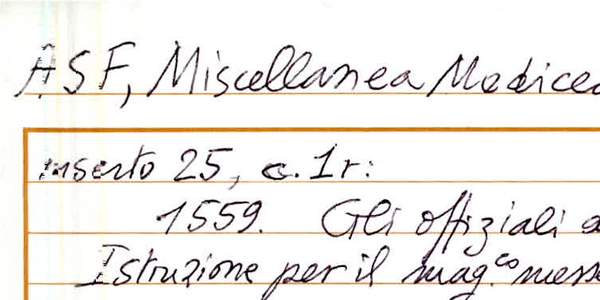 ASF, Miscellanea Medicea
inserto 25, c. 1r:
1559. Gli offiziali
Istruzione per il mag.co messe